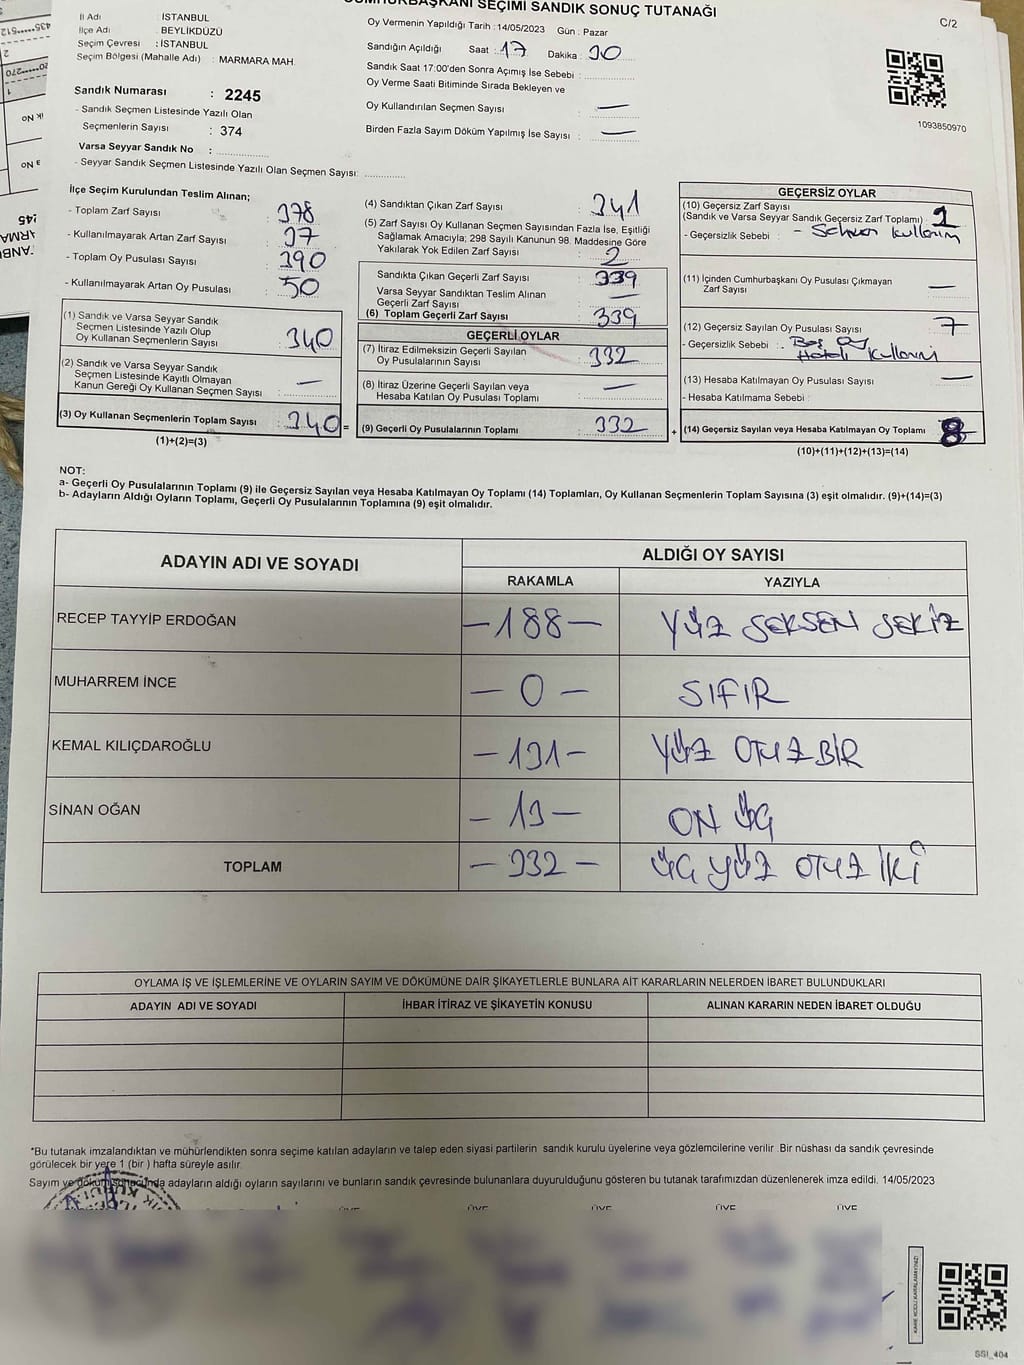 CUMHURBAŞKANI SEÇİMİ SANDIK SONUÇ TUTANAĞI
C/2
İl Adı : İSTANBUL
İlçe Adı : BEYLİKDÜZÜ
Seçim Çevresi : İSTANBUL
Seçim Bölgesi (Mahalle Adı) : MARMARA MAH.
Sandık Numarası : 2245
- Sandık Seçmen Listesinde Yazılı Olan
Seçmenlerin Sayısı : 374
Varsa Seyyar Sandık No :
- Seyyar Sandık Seçmen Listesinde Yazılı Olan Seçmen Sayısı:
Oy Vermenin Yapıldığı Tarih : 14/05/2023 Gün : Pazar
Sandığın Açıldığı Saat : 17 Dakika : 30
Sandık Saat 17:00'den Sonra Açımış İse Sebebi :
Oy Verme Saati Bitiminde Sırada Bekleyen ve
Oy Kullandırılan Seçmen Sayısı : —
Birden Fazla Sayım Döküm Yapılmış İse Sayısı : —
1093850970
İlçe Seçim Kurulundan Teslim Alınan;
- Toplam Zarf Sayısı : 378
- Kullanılmayarak Artan Zarf Sayısı : 37
- Toplam Oy Pusulası Sayısı : 390
- Kullanılmayarak Artan Oy Pusulası : 50
(1) Sandık ve Varsa Seyyar Sandık
Seçmen Listesinde Yazılı Olup
Oy Kullanan Seçmenlerin Sayısı : 340
(2) Sandık ve Varsa Seyyar Sandık
Seçmen Listesinde Kayıtlı Olmayan
Kanun Gereği Oy Kullanan Seçmen Sayısı : —
(3) Oy Kullanan Seçmenlerin Toplam Sayısı : 340 =
(1)+(2)=(3)
(4) Sandıktan Çıkan Zarf Sayısı : 341
(5) Zarf Sayısı Oy Kullanan Seçmen Sayısından Fazla İse, Eşitliği
Sağlamak Amacıyla; 298 Sayılı Kanunun 98. Maddesine Göre
Yakılarak Yok Edilen Zarf Sayısı : 2
Sandıkta Çıkan Geçerli Zarf Sayısı : 339
Varsa Seyyar Sandıktan Teslim Alınan
Geçerli Zarf Sayısı : —
(6) Toplam Geçerli Zarf Sayısı : 339
GEÇERLİ OYLAR
(7) İtiraz Edilmeksizin Geçerli Sayılan
Oy Pusulalarının Sayısı : 332
(8) İtiraz Üzerine Geçerli Sayılan veya
Hesaba Katılan Oy Pusulası Toplamı : —
(9) Geçerli Oy Pusulalarının Toplamı : 332 +
GEÇERSİZ OYLAR
(10) Geçersiz Zarf Sayısı
(Sandık ve Varsa Seyyar Sandık Geçersiz Zarf Toplamı) : 1
- Geçersizlik Sebebi : - Sehven kullanım
(11) İçinden Cumhurbaşkanı Oy Pusulası Çıkmayan
Zarf Sayısı : —
(12) Geçersiz Sayılan Oy Pusulası Sayısı : 7
- Geçersizlik Sebebi : . Boş oy
Hatalı kullanım
(13) Hesaba Katılmayan Oy Pusulası Sayısı : —
- Hesaba Katılmama Sebebi :
(14) Geçersiz Sayılan veya Hesaba Katılmayan Oy Toplamı : 8
(10)+(11)+(12)+(13)=(14)
NOT:
a- Geçerli Oy Pusulalarının Toplamı (9) ile Geçersiz Sayılan veya Hesaba Katılmayan Oy Toplamı (14) Toplamları, Oy Kullanan Seçmenlerin Toplam Sayısına (3) eşit olmalıdır. (9)+(14)=(3)
b- Adayların Aldığı Oyların Toplamı, Geçerli Oy Pusulalarının Toplamına (9) eşit olmalıdır.
ADAYIN ADI VE SOYADI
ALDIĞI OY SAYISI
RAKAMLA YAZIYLA
RECEP TAYYİP ERDOĞAN —188— YÜZ SEKSEN SEKİZ
MUHARREM İNCE —0— SIFIR
KEMAL KILIÇDAROĞLU —131— YÜZ OTUZ BİR
SİNAN OĞAN —13— ON ÜÇ
TOPLAM —332— ÜÇ YÜZ OTUZ İKİ
OYLAMA İŞ VE İŞLEMLERİNE VE OYLARIN SAYIM VE DÖKÜMÜNE DAİR ŞİKAYETLERLE BUNLARA AİT KARARLARIN NELERDEN İBARET BULUNDUKLARI
ADAYIN ADI VE SOYADI İHBAR İTİRAZ VE ŞİKAYETİN KONUSU ALINAN KARARIN NEDEN İBARET OLDUĞU
*Bu tutanak imzalandıktan ve mühürlendikten sonra seçime katılan adayların ve talep eden siyasi partilerin sandık kurulu üyelerine veya gözlemcilerine verilir .Bir nüshası da sandık çevresinde
görülecek bir yere 1 (bir ) hafta süreyle asılır.
Sayım ve döküm sonucunda adayların aldığı oyların sayılarını ve bunların sandık çevresinde bulunanlara duyurulduğunu gösteren bu tutanak tarafımızdan düzenlenerek imza edildi. 14/05/2023
ÜYE ÜYE ÜYE ÜYE ÜYE
KARE KODU KARALAMAYINIZ!
SSI_404